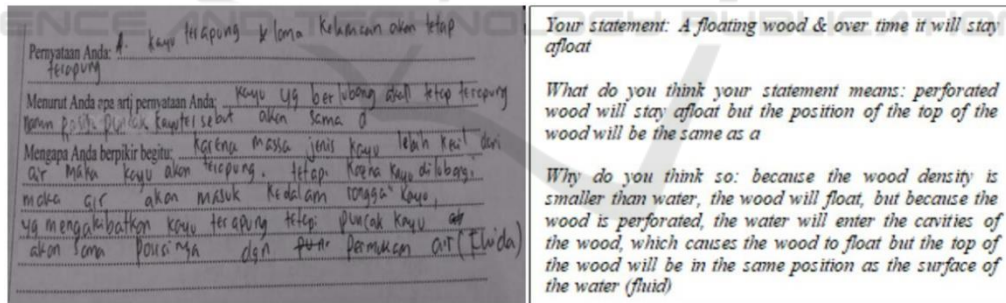 Pernyataan Anda: A. kayu terapung & lama kelamaan akan tetap
terapung
Menurut Anda apa arti pernyataan Anda: kayu yg berlubang akan tetap terapung
namun posisi puncak kayu tersebut akan sama d
Mengapa Anda berpikir begitu: karena massa jenis kayu lebih kecil dari
air maka kayu akan terapung. tetapi karena kayu dilubangi,
maka air akan masuk kedalam rongga" kayu,
yg mengakibatkan kayu terapung tetapi puncak kayu
akan sama posisinya dgn permukaan air (fluida)
Your statement: A floating wood & over time it will stay
afloat
What do you think your statement means: perforated
wood will stay afloat but the position of the top of the
wood will be the same as a
Why do you think so: because the wood density is
smaller than water, the wood will float, but because the
wood is perforated, the water will enter the cavities of
the wood, which causes the wood to float but the top of
the wood will be in the same position as the surface of
the water (fluid)